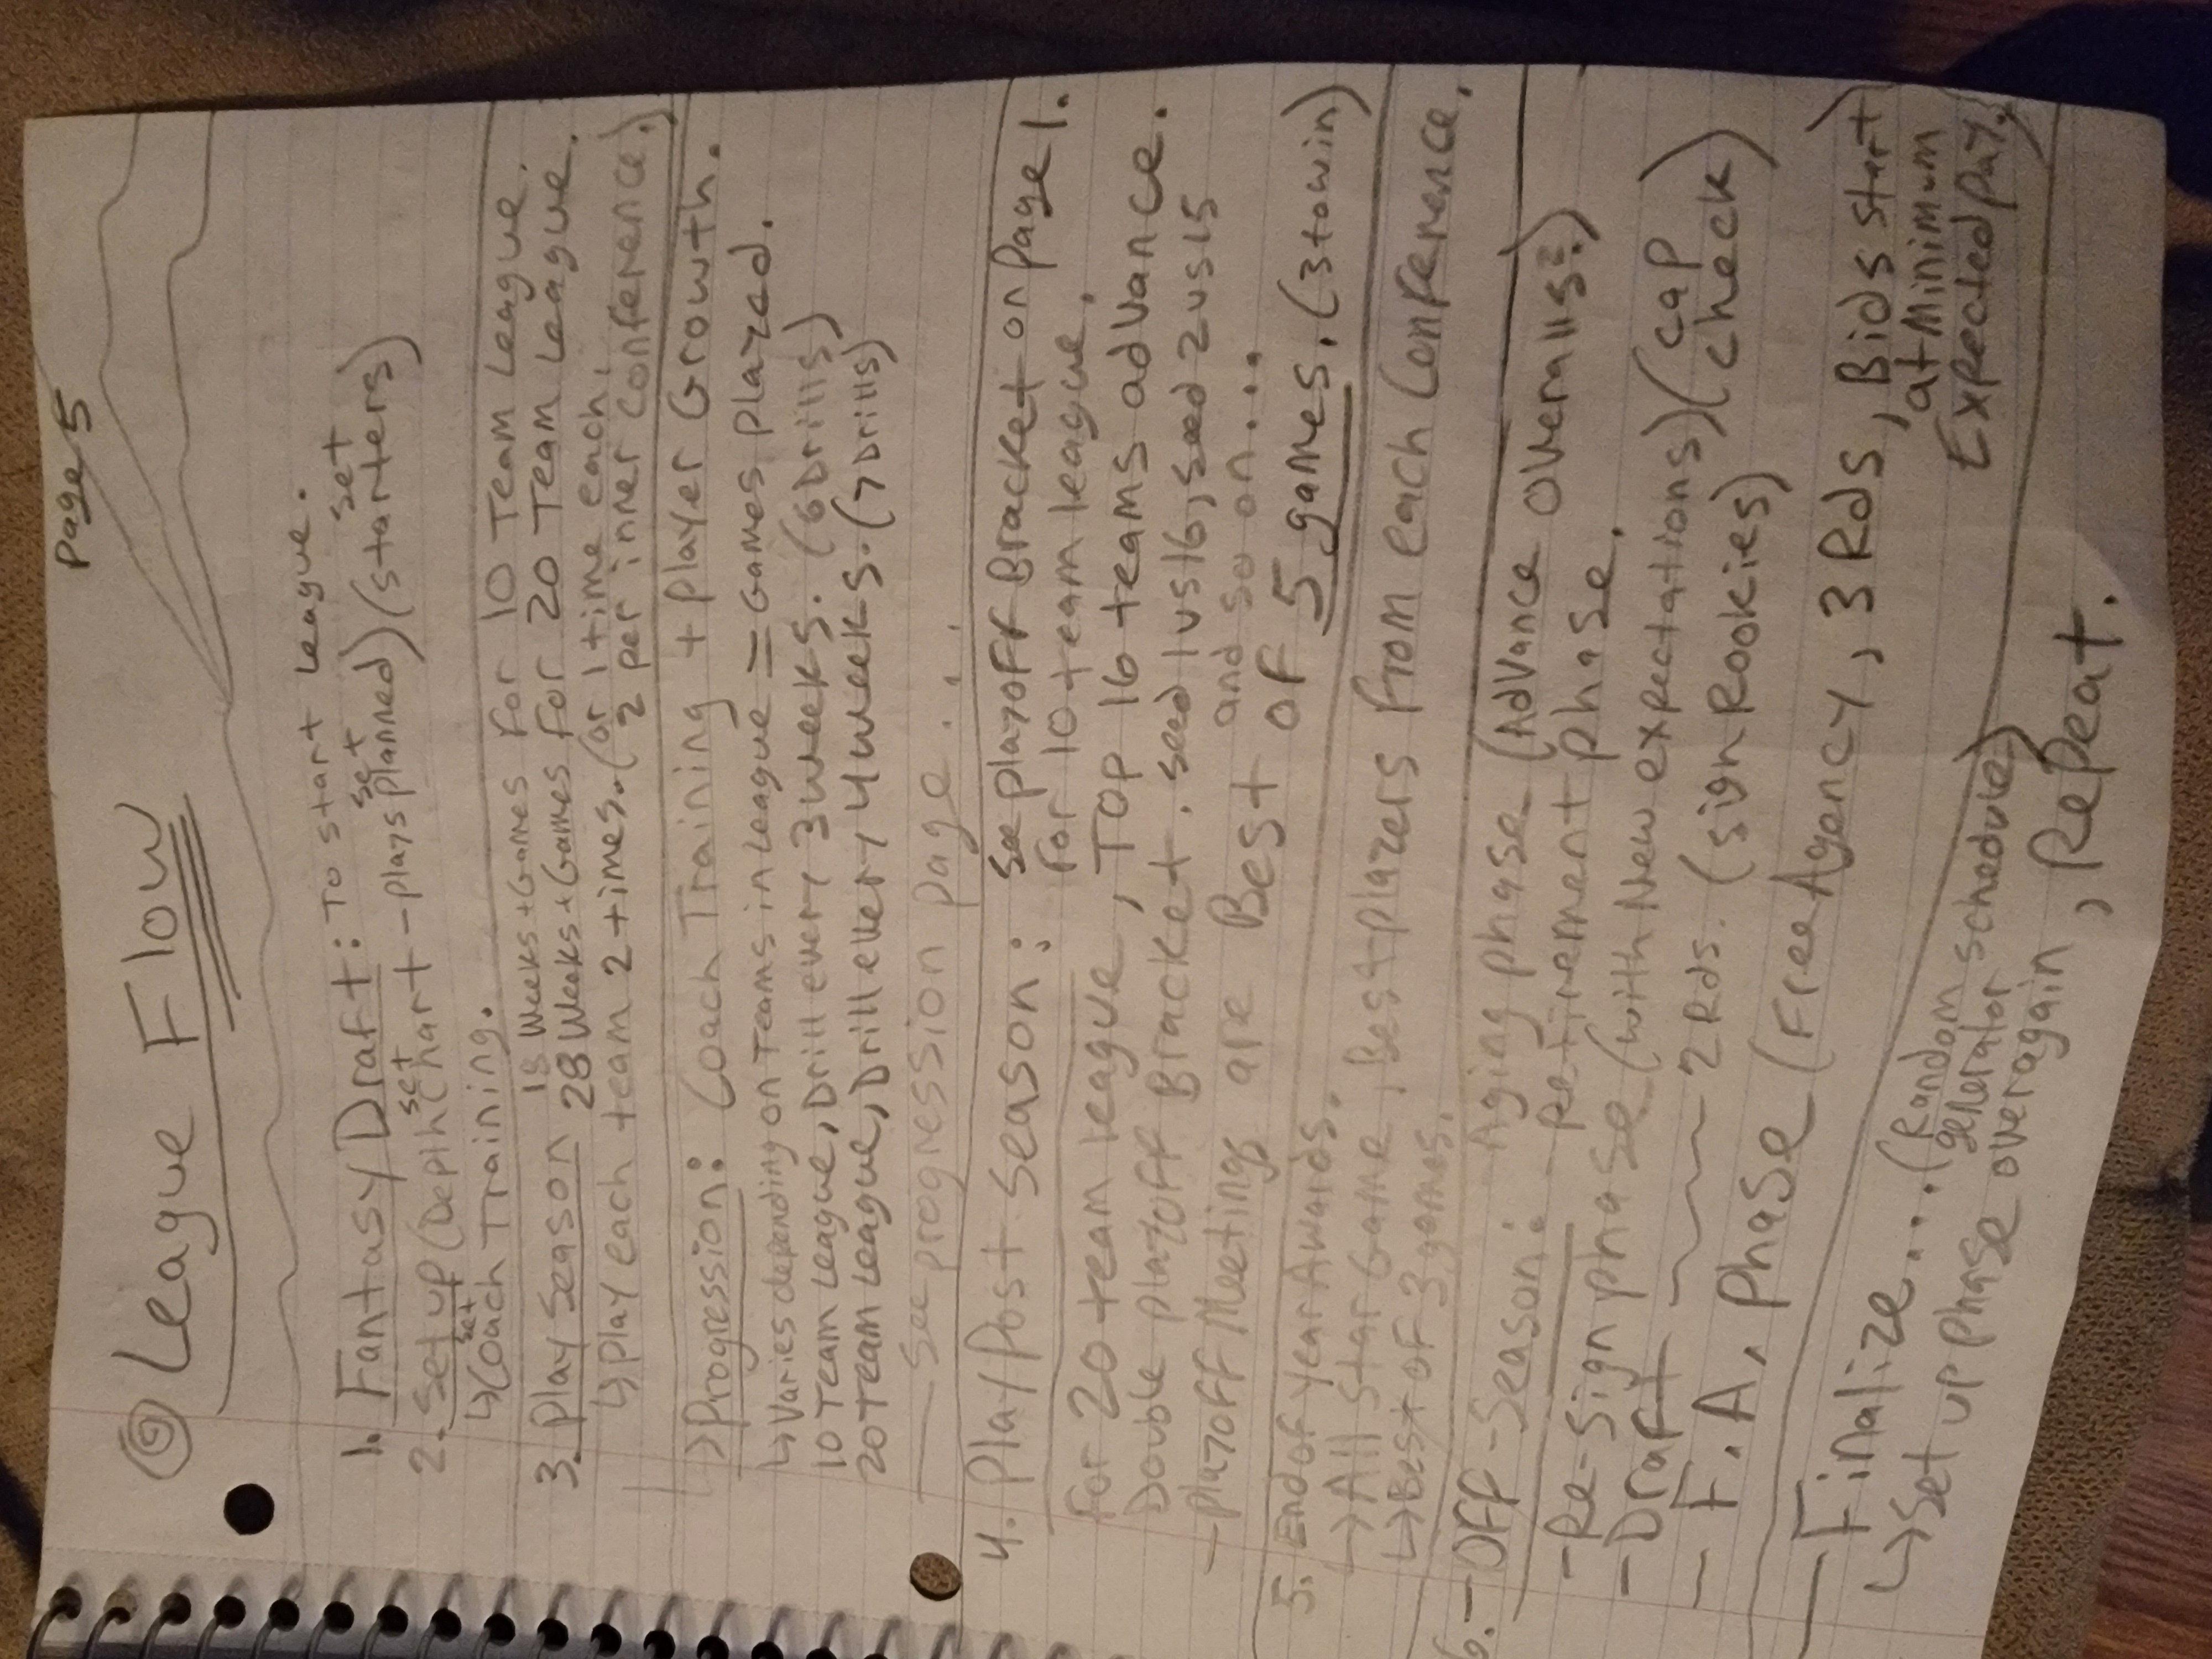 Page 5
League Flow
1. Fantasy Draft: To start League.
2. Set up (Depth Chart set - plays planned set) (starters set)
↳ Coach Training set.
3. Play Season 18 Weeks + Games for 10 Team League.
28 Weeks + Games for 20 Team League.
↳ Play each team 2 times. (or 1 time each,
2 per inner conference.)
↳ Progression: Coach Training + Player Growth.
↳ Varies depending on Teams in League = Games Played.
10 Team League, Drill every 3 weeks. (6 Drills)
20 Team League, Drill every 4 weeks. (7 Drills)
— See progression page...
4. Play Post Season: see playoff Bracket on Page 1.
for 10 team league.
For 20 team league, Top 16 teams advance.
Double playoff Bracket. seed 1 vs 16, seed 2 vs 15
and so on...
- Playoff Meetings are Best of 5 games. (3 to win)
5. End of year Awards.
↳ All Star Game, Best players from each Conference.
↳ Best of 3 games.
6. - Off-Season: - Aging phase (Advance overalls?)
- Retirement phase.
- Re-sign phase (with New expectations) (cap check)
- Draft — 2 Rds. (sign Rookies)
- F.A. Phase (Free Agency, 3 Rds, Bids start
at Minimum
Expected pay.)
- Finalize... (Random generator schedule)
↳ Set up phase over again, Repeat.